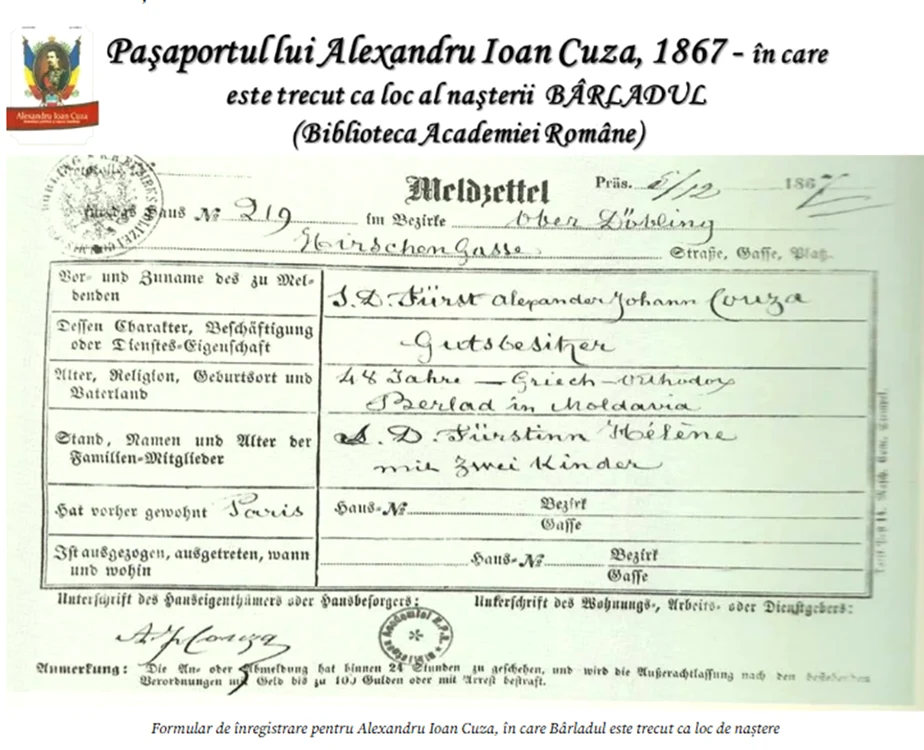 Paşaportul lui Alexandru Ioan Cuza, 1867 - în care
este trecut ca loc al naşterii BÂRLADUL
(Biblioteca Academiei Române)
Alexandru Ioan Cuza
Meldzettel
Präs. 5/12 1867
Haus № 219 im Bezirke Ober Döbling
Hirschen Gasse Straße, Gasse, Platz.
Vor- und Zuname des zu Mel-
denden
S. D. Fürst Alexander Johann Couza
Dessen Charakter, Beschäftigung
oder Dienstes-Eigenschaft
Gutsbesitzer
Alter, Religion, Geburtsort und
Vaterland
48 Jahre — Griech-Orthodox
Berlad in Moldavia
Stand, Namen und Alter der
Familien-Mitglieder
D. Fürstinn Hélène
mit zwei Kinder
Hat vorher gewohnt Paris
Haus-№ Bezirk
Gasse
Ist ausgezogen, ausgetreten, wann
und wohin
Haus-№ Bezirk
Gasse
Unterschrift des Hauseigenthümers oder Hausbesorgers:
Unterschrift des Wohnungs-, Arbeits- oder Dienstgebers:
A J Couza
Anmerkung: Die An- oder Abmeldung hat binnen 24 Stunden zu geschehen, und wird die Außerachtlassung nach den
Verordnungen mit Geld bis zu 100 Gulden oder mit Arrest bestraft.
Formular de înregistrare pentru Alexandru Ioan Cuza, în care Bârladul este trecut ca loc de naștere